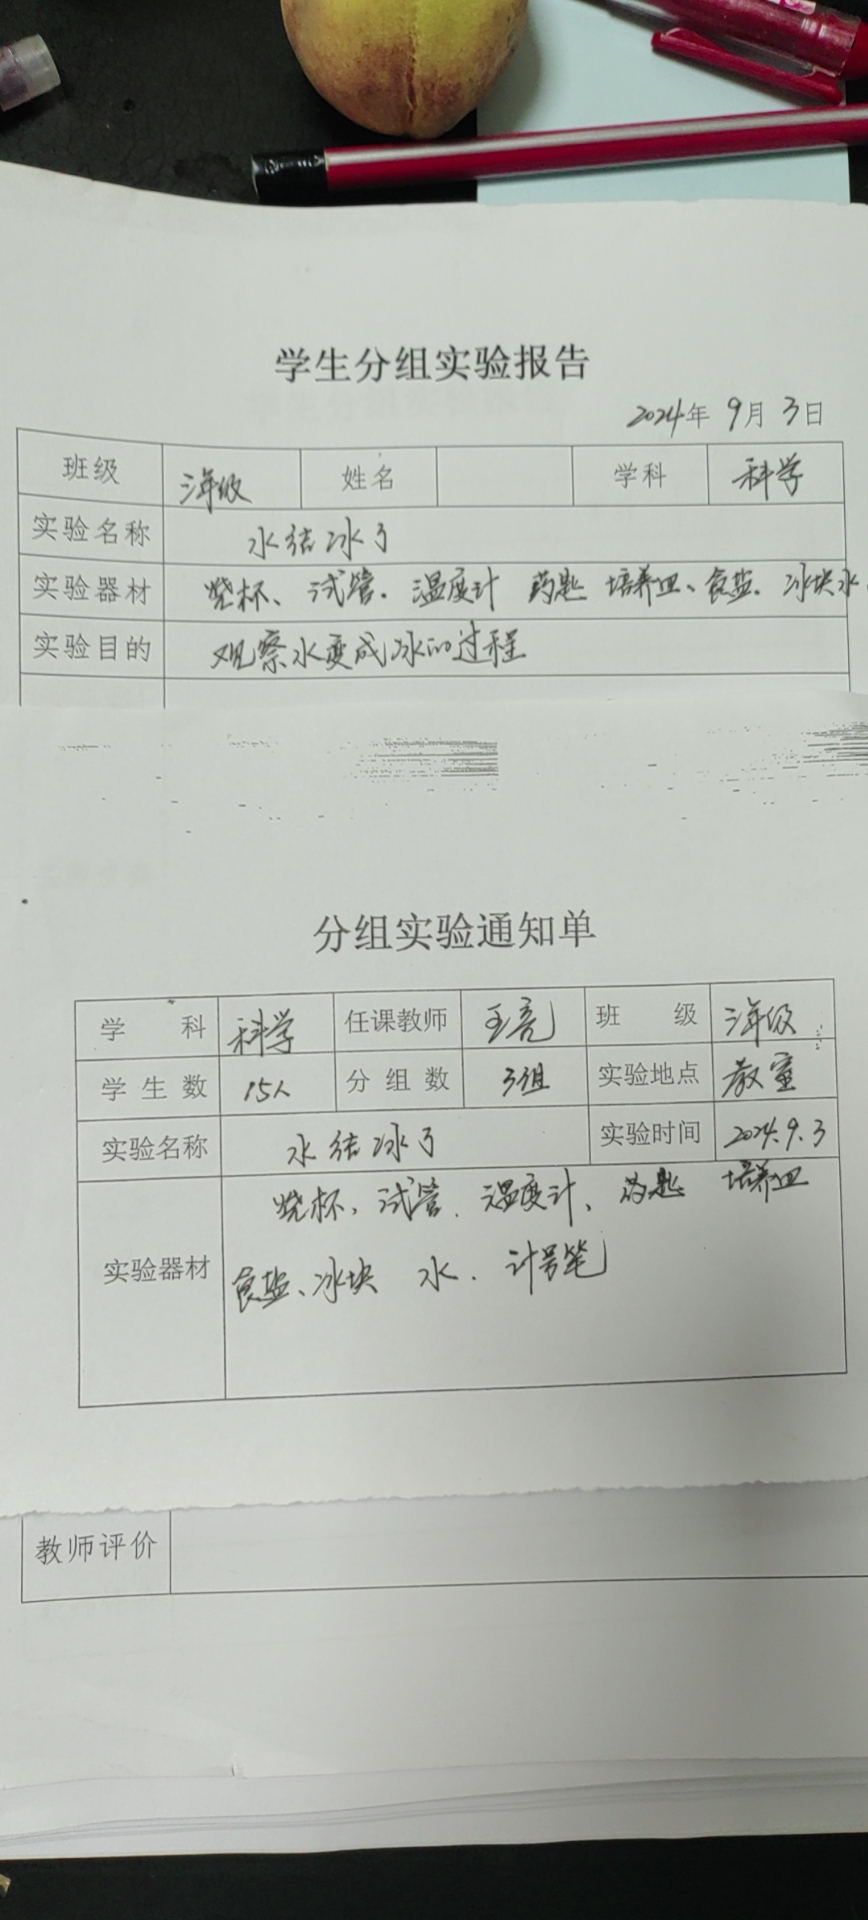 学生分组实验报告
2024年 9月 3日
班级 三年级 姓名 学科 科学
实验名称 水结冰了
实验器材 烧杯、试管、温度计 药匙 培养皿、食盐、冰块水、
实验目的 观察水变成冰的过程
分组实验通知单
学科 科学 任课教师 王亮 班级 三年级
学生数 15人 分组数 3组 实验地点 教室
实验名称 水结冰了 实验时间 2024.9.3
实验器材 烧杯、试管、温度计、药匙 培养皿
食盐、冰块 水、计号笔
教师评价